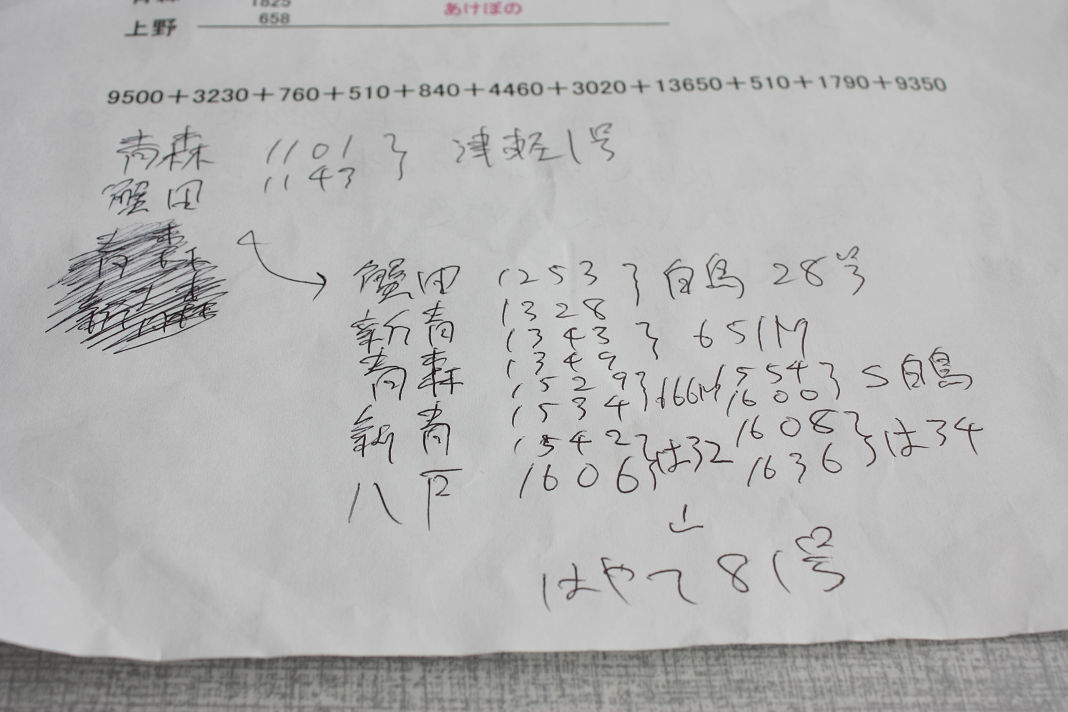 1825
658 あけぼの
上野
9500+3230+760+510+840+4460+3020+13650+510+1790+9350
青森 1101 } 津軽1号
蟹田 1143
蟹田 1253 } 白鳥 28号
新青 1328
1343 } 651M
青森 1349
1529 } 666M 1554 } S白鳥
1534 1600
新青 1542 } は32 1608 } は34
八戸 1606 1636
↓
はやて 81号